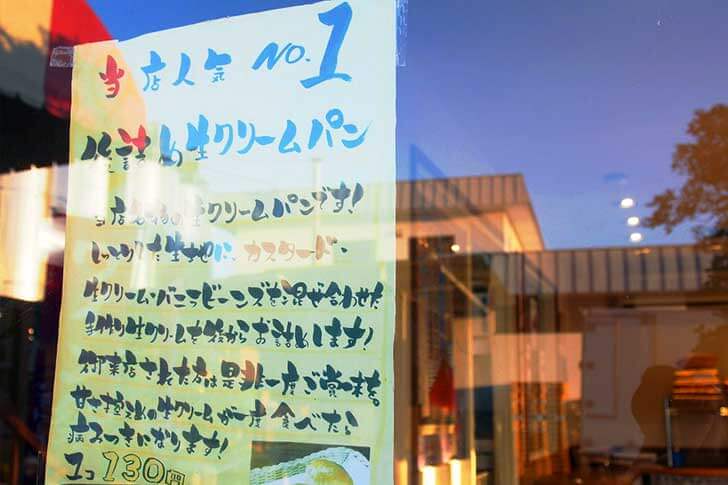 当店人気 NO.1
後詰め生クリームパン
当店名物の生クリームパンです!
しっとりした生地に、カスタード・
生クリーム・バニラビーンズを混ぜ合わせた
手作り生クリームを後からお詰めします!
御来店された方は是非一度ご賞味を。
甘さ控え目の生クリームが一度食べたら
病みつきになります!
1コ 130円